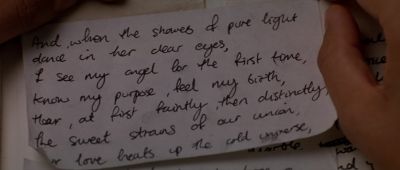 And, when the showes of pure light
dance in her clear eyes,
I see my angel for the first time,
know my purpose, feel my birth,
Hear, at first faintly, then distinctly,
the sweet strains of our union,
love heats up the cold universe,